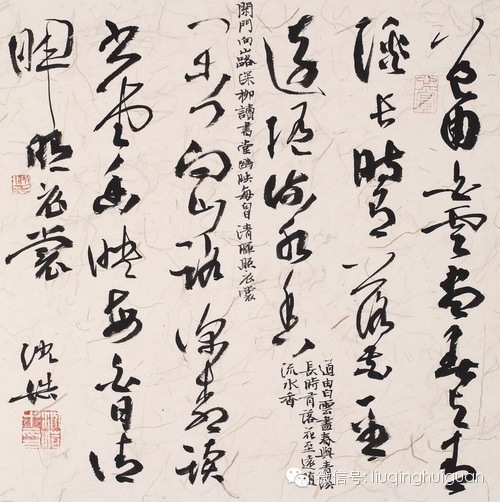 道由白雲盡春與青
溪長時有落花至
遠隨流水香
道由白雲盡春與青溪
長時有落花至遠隨
流水香
閑門向山路深柳讀
書堂幽映每白日清
暉照衣裳
閑門向山路深柳讀書堂幽映每白日清暉照衣裳
微信号: liuqinghuiguan